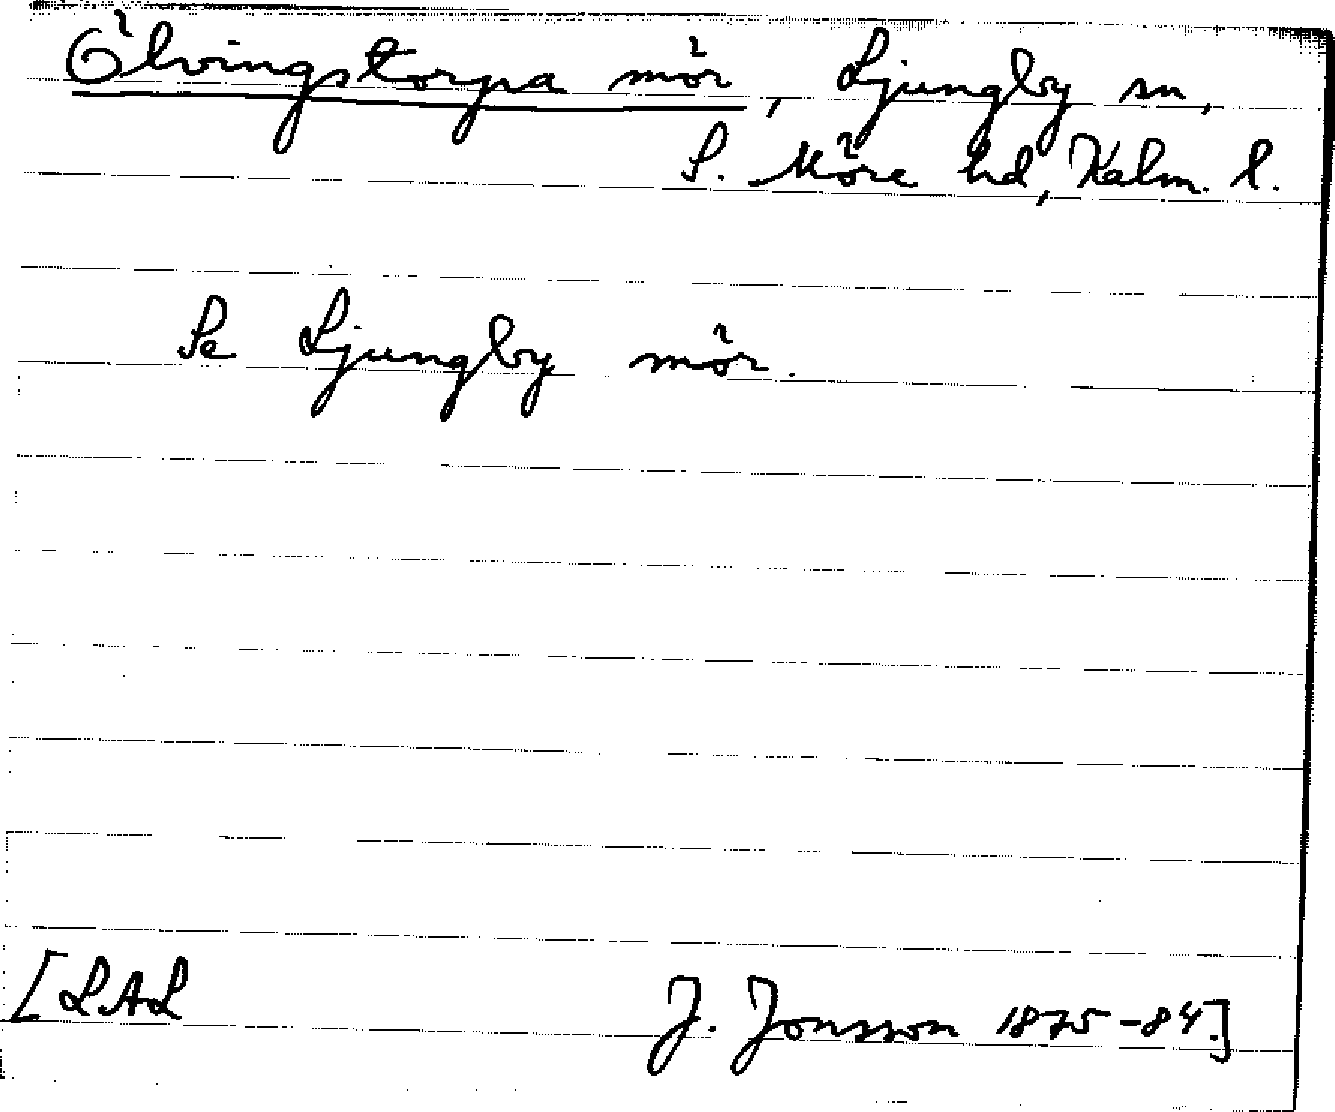 Ölvingstorpa mör, Ljungby sn,
S. Möre hd, Kalm. l.
Se Ljungby mör.
[LAL J. Jonsson 1875-84.]